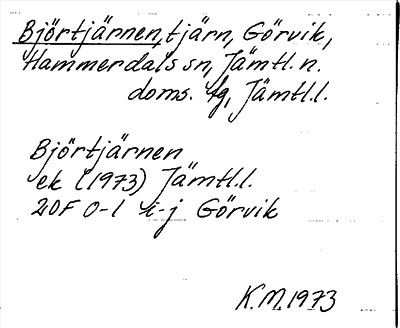 Björtjärnen, tjärn, Görvik,
Hammerdals sn, Jämtl. n.
doms. tg, Jämtl.l.
Björtjärnen
ek (1973) Jämtl.l.
20F 0-1 i-j Görvik
K.M. 1973